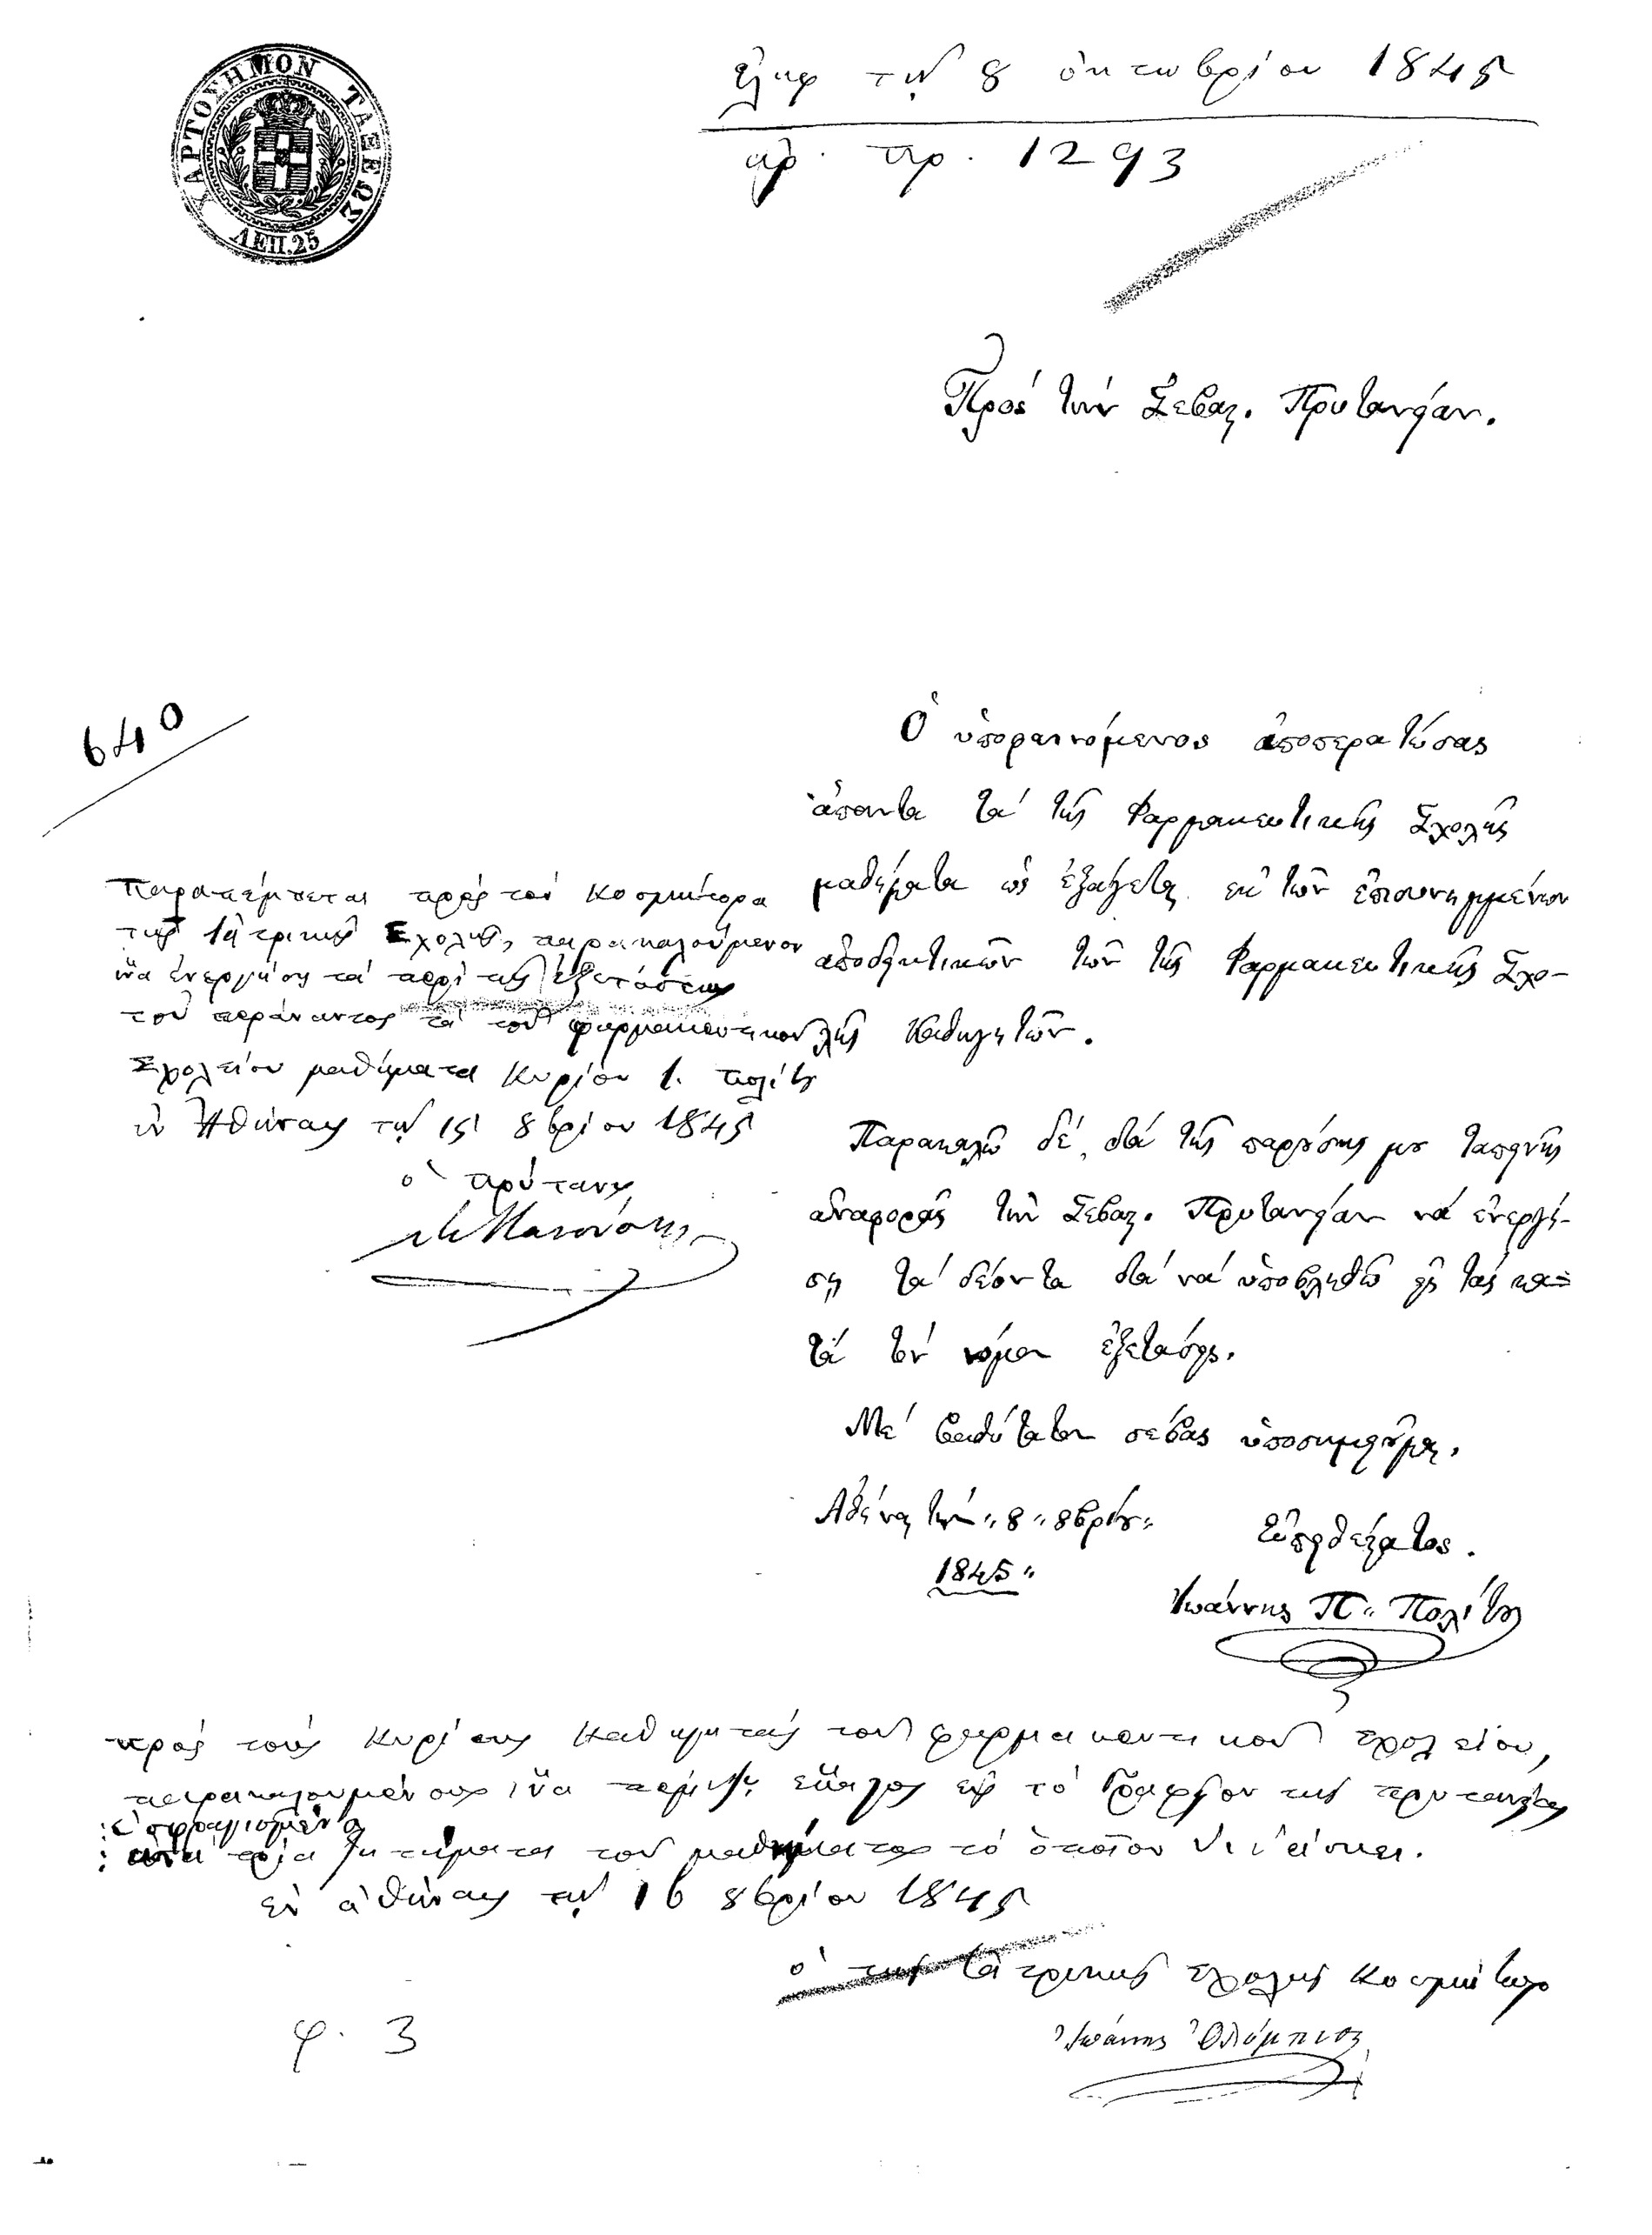 ΧΑΡΤΟΣΗΜΟΝ ΤΑΞΕΩΣ
ΛΕΠ.25
ἐλήφ τῇ 8 ὀκτωβρίου 1845
αρ. πρ. 1293
Πρὸς τὴν Σεβας. Πρυτανείαν.
640
Ὁ ὑποφαινόμενος ἀποπερατώσας
ἅπαντα τὰ τῆς Φαρμακευτικῆς Σχολῆς
μαθήματα ὡς ἐξάγεται ἐκ τῶν ἐπισυνημμένων
ἀποδεικτικῶν τῶν τῆς Φαρμακευτικῆς Σχο-
λῆς Καθηγητῶν.
Παρακαλῶ δέ, διὰ τῆς παρούσης μου ταπεινῆς
ἀναφορᾶς τὴν Σεβας. Πρυτανείαν νά ἐνεργή-
σῃ τὰ δέοντα διά νά ὑποβληθῶ εἰς τάς κα=
τά τόν νόμον ἐξετάσεις.
Μέ βαθύτατον σέβας ὑποσημειοῦμαι.
Ἀθήναι τήν „8„ 8βρίου„
1845„
Εὐπειθέστατος.
Ἰωάννης Π„ Πολίτης
Παραπέμπεται πρὸς τὸν Κοσμήτορα
τῆς Ἰατρικῆς Σχολῆς, παρακαλούμενον
ἵνα ἐνεργήσῃ τὰ περὶ τῆς ἐξετάσεως
τοῦ περάναντος τὰ τοῦ φαρμακευτικοῦ
Σχολείου μαθήματα Κυρίου Ι. Πολίτη
ἐν Ἀθήναις τῇ 15 8βρίου 1845
ὁ πρύτανις
πρὸς τοὺς Κυρίους Καθηγητὰς τοῦ φαρμακευτικοῦ σχολείου,
παρακαλουμένους ἵνα πέμψῃ ἕκαστος εἰς τὸ Γραφεῖον τῆς πρυτανείας
ἐσφραγισμένα
ἀνὰ τρία ζητήματα τοῦ μαθήματος τὸ ὁποῖον διδάσκει.
ἐν ἀθήναις τῇ 16 8βρίου 1845
ὁ τῆς ἰατρικῆς σχολῆς Κοσμήτωρ
Ἰωάννης Ὀλύμπιος
φ. 3